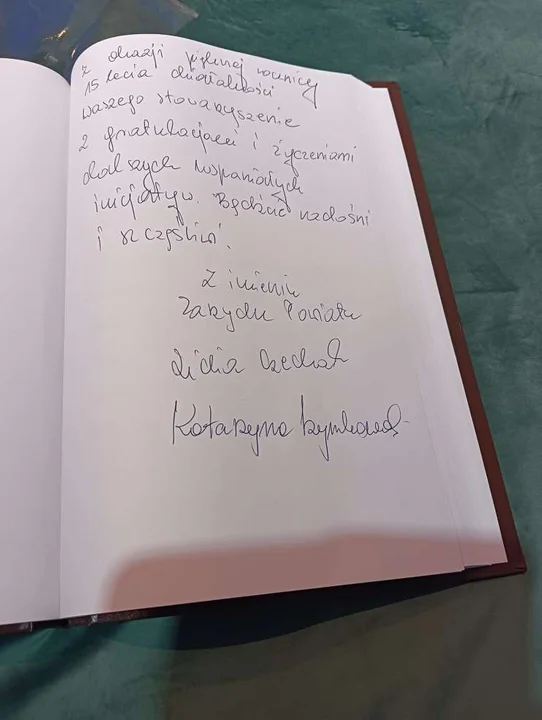 Z okazji pięknej rocznicy
15 lecia działalności
waszego stowarzyszenie
z gratulacjami i życzeniami
dalszych wspaniałych
inicjatyw. Bądźcie radośni
i szczęśliwi.
Z imieniu
Zarządu Powiatu
Lidia Czechak
Katarzyna